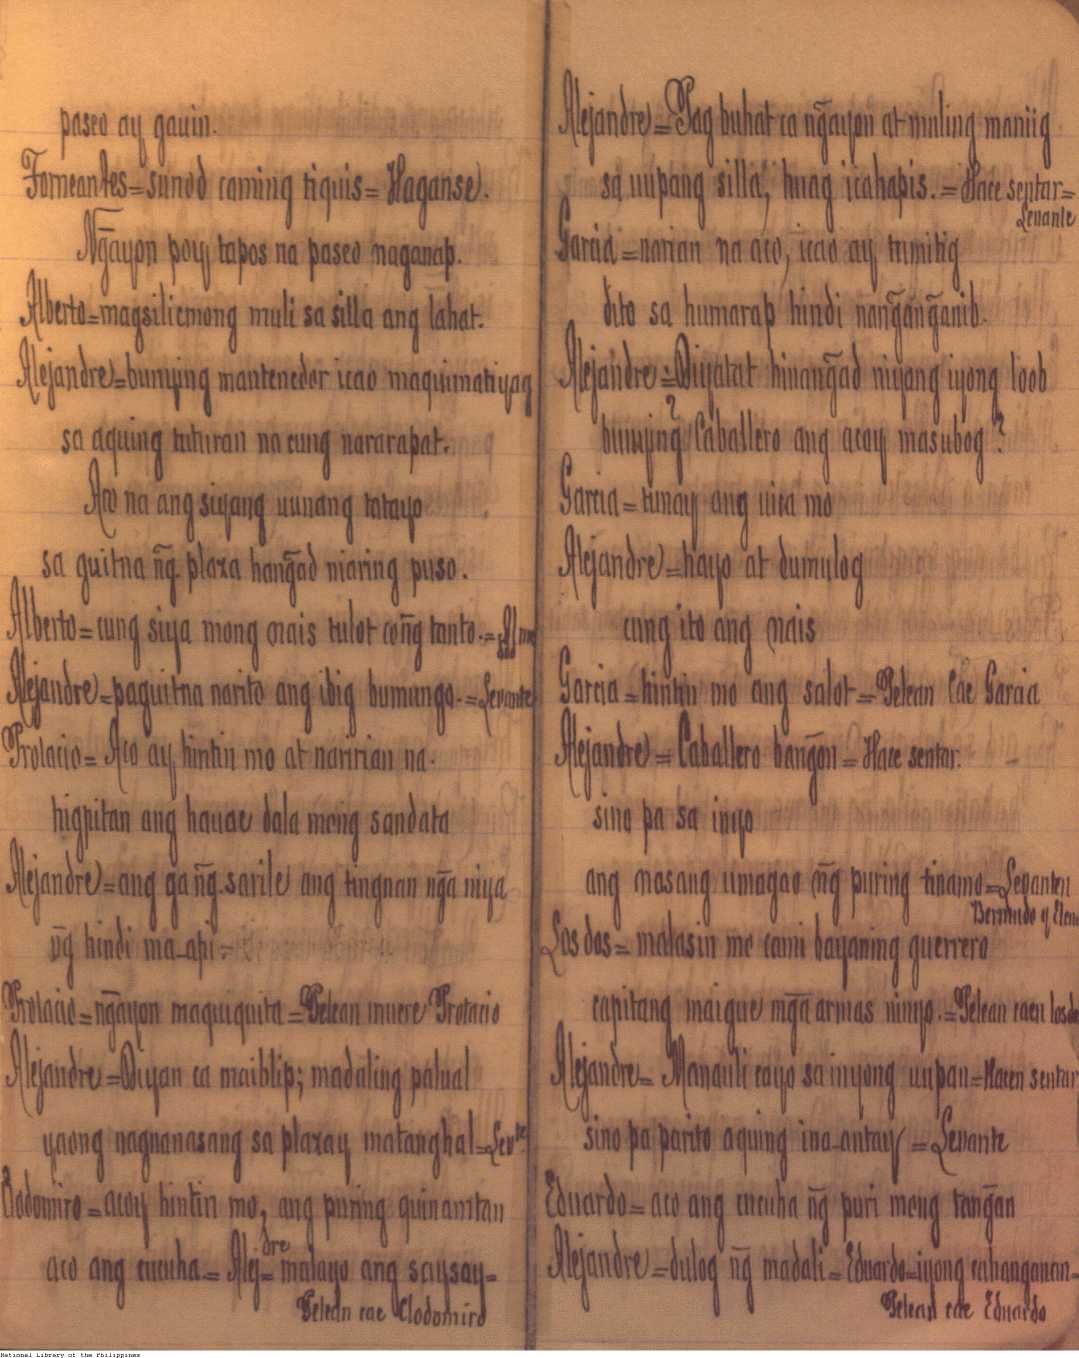 paseo ay gauin.
Torneantes = sunod caming tiquis = Haganse.
Ñgayon poiy tapos na paseo naganap.
Alberto = magsiliemong muli sa silla ang lahat.
Alejandre = buniying mantenedor icao maquimatiyag
sa aquing tuturan na cung nararapat.
Aco na ang siyang uunang tatayo
sa guitna ng̃ plaza hang̃ad niaring puso.
Alberto = cung siya mong nais tulot cong̃ tanto. =
Alejandre = paguitna narito ang ibig bumungo. = Levante
Protacio = Aco ay hintin mo at naririan na.
higpitan ang hauac dala mong sandata
Alejandre = ang ga ng̃ sarile ang tingnan ng̃a niya
ng̃ hindi ma-api =
Protacio = ng̃ayon maquiquita = Pelean muere Protacio
Alejandre = Diyan ca maiblip; madaling palual
yaong nagnanasang sa plazay matanghal = Levte
Clodomiro = acoiy hintin mo, ang puring quinamtan
aco ang cucuha = Alejdre = malayo ang saysay =
Pelean cae Clodomiro
Alejandre = Pag buhat ca ng̃ayon at muling maniig
sa uupang silla, huag icahapis. = Hace sentar =
Levante
Garcia = narian na aco, icao ay tumitig
dito sa humarap hindi nang̃ang̃anib.
Alejandre = Diyatat hinang̃ad niyang iyong loob
buniying Caballero ang acay masubog?
Garcia = tunay ang uica mo
Alejandre = hayo at dumulog
cung ito ang nais
Garcia = hintin mo ang salot = Pelean Cae Garcia
Alejandre = Caballero bang̃on = Hace sentar.
sino pa sa inyo
ang nasang umagao ng̃ puring tinamo = Levanten
Bermudo y Elen
Los dos = malasin mo cami bayaning guerrero
capitang maigue mg̃a armas ninyo. = Pelean caen los do
Alejandre = Manauli cayo sa inyong uupan = Hacen sentar
sino pa parito aquing ina-antay = Levante
Eduardo = aco ang cucuha ng̃ puri mong tang̃an
Alejandre = dulog ng̃ madali = Eduardo = iyong cahanganan =
Pelean cae Eduardo
National Library of the Philippines